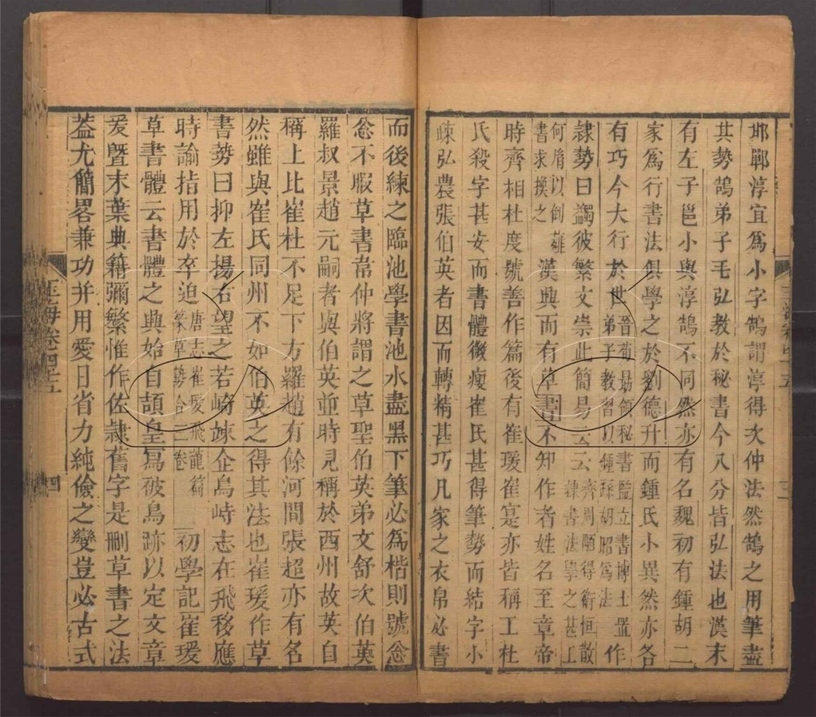 邯鄲淳宜為小字鵠謂淳得次仲法然鵠之用筆盡
其勢鵠弟子毛弘教於秘書今八分皆弘法也漢末
有左子邑小與淳鵠不同然亦有名魏初有鍾胡二
家為行書法俱學之於劉德升而鍾氏小異然亦各
有巧今大行於世晉荀勗領秘書監立書博士置弟子教習以鍾胡為法作
隸勢曰蠲彼繁文崇此簡易云云齊周顒得衛恒散隸書法學之甚工
何胤以倒薤書求換之漢興而有草書不知作者姓名至章帝
時齊相杜度號善作篇後有崔瑗崔寔亦皆稱工杜
氏殺字甚安而書體微瘦崔氏甚得筆勢而結字小
疎弘農張伯英者因而轉精甚巧凡家之衣帛必書
而後練之臨池學書池水盡黑下筆必為楷則號怱
怱不暇草書韋仲將謂之草聖伯英弟文舒次伯英
羅叔景趙元嗣者與伯英並時見稱於西州故英自
稱上比崔杜不足下方羅趙有餘河間張超亦有名
然雖與崔氏同州不如伯英之得其法也崔瑗作草
書勢曰抑左揚右望之若崎竦企鳥峙志在飛移應
時諭指用於卒迫唐志崔瑗飛龍篇篆草勢合三卷初學記崔瑗
草書體云書體之典始自頡皇寫彼鳥跡以定文章
爰暨末葉典籍彌繁惟作佐隸舊字是刪草書之法
葢尤簡畧兼功并用愛日省力純儉之變豈必古式
玉海卷四十五
四